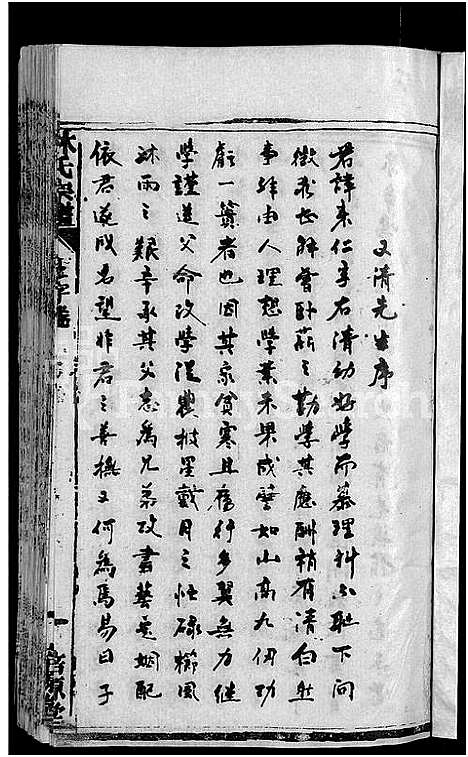 又清先生序
君諱來仁字右清幼好學而慕理科不耻下問
微求甚解曾卧薪之勤學其應酬稍有清白世
事殊由人理想學業未果成譬如山高九仞功
虧一簣者也因其家貧寒且雁行多翼無力继
學謹遵父命改學從農披星戴月之忙碌櫛風
沐雨之艱辛承其父志為兄弟攻書藝是姻配
依君遂成名望非君之善撫又何為焉易曰子
林氏宗譜